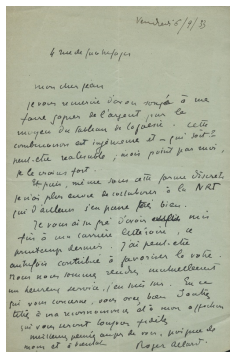 Vendredi 6/9/33
4 rue de
mon cher Jean
je vous remercie d'avoir songé à me
faire gagner de l'argent par le
moyen du tableau de la poésie. Cette
combinaison est ingénieuse et — qui sait ?
peut-être réalisable ; mais point par moi,
je le crains fort.
Et puis, même sous cette forme discrète
je n'ai plus envie de collaborer à la NRF
qui d'ailleurs s'en passe très bien.
Je vous ai su gré d'avoir mis
fin à ma carrière littéraire, le
printemps dernier. J'ai peut-être
autrefois contribué à favoriser la vôtre.
Nous nous sommes rendu mutuellement
un heureux service, j'en suis sûr. En ce
qui vous concerne, vous avez bien
à ma reconnaissance et à mon affection
qui vous seront toujours fidèles
de nous
mons et
Roger Allard